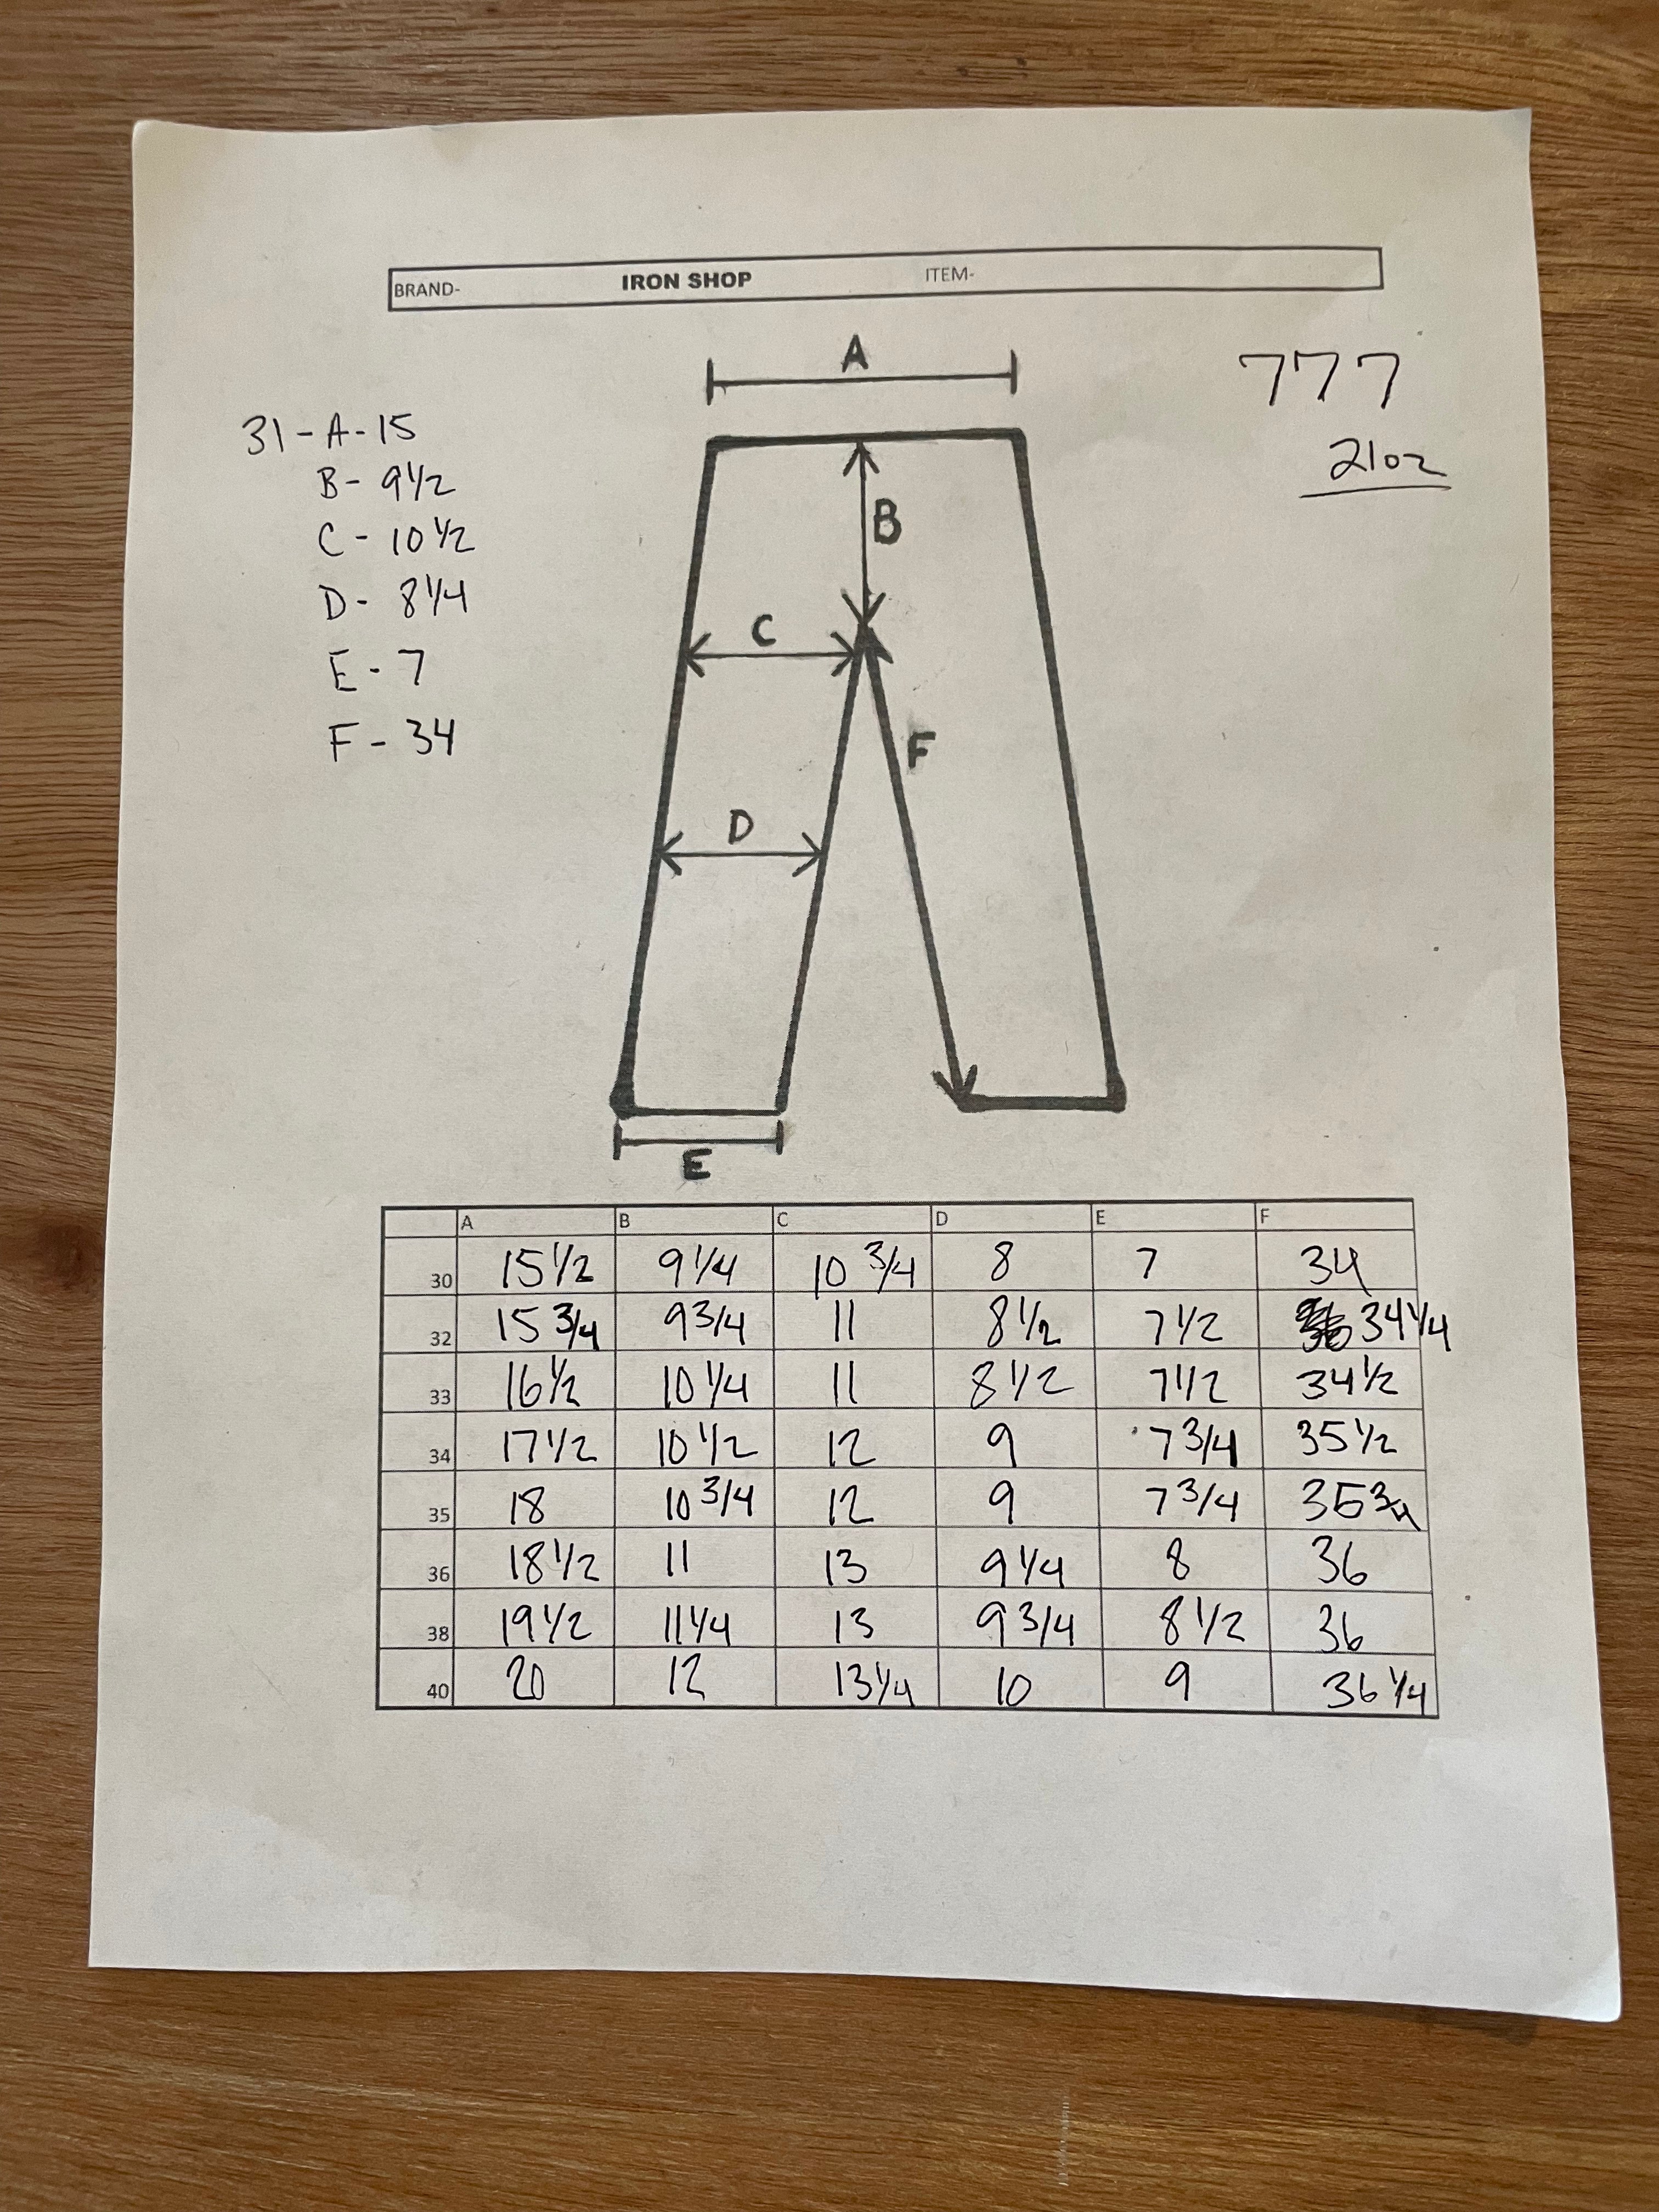 BRAND- IRON SHOP ITEM-
777
21oz
31-A-15
B- 9 1/2
C- 10 1/2
D- 8 1/4
E- 7
F- 34
A
B
C
F
D
E
A B C D E F
30 15 1/2 9 1/4 10 3/4 8 7 34
32 15 3/4 9 3/4 11 8 1/2 7 1/2 34 1/4
33 16 1/2 10 1/4 11 8 1/2 7 1/2 34 1/2
34 17 1/2 10 1/2 12 9 7 3/4 35 1/2
35 18 10 3/4 12 9 7 3/4 35 3/4
36 18 1/2 11 13 9 1/4 8 36
38 19 1/2 11 1/4 13 9 3/4 8 1/2 36
40 20 12 13 1/4 10 9 36 1/4